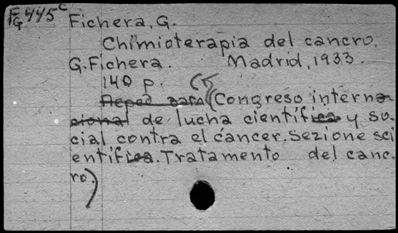 FG445c Fichera, G.
Chimioterapia del cancro.
G. Fichera. Madrid, 1933.
140 p.
(Congreso interna-
cional de lucha científica y so-
cial contra el cáncer. Sezione sci
entifica. Tratamento del canc-
ro.)